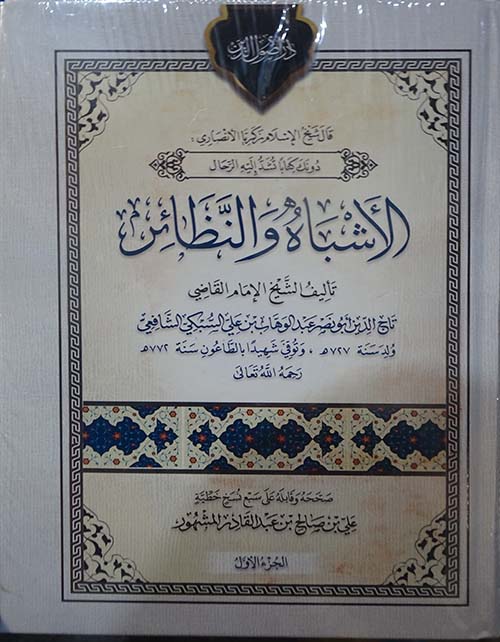 دار أصول الدين
قال شيخ الإسلام زكريا الأنصاري :
دونك كتابا تشد إليه الرحال
الأشباه والنظائر
تأليف الشيخ الإمام القاضي
تاج الدين أبو نصر عبد الوهاب بن علي السبكي الشافعي
ولد سنة ٧٢٧هـ ، وتوفي شهيدا بالطاعون سنة ٧٧٢هـ
رحمه الله تعالى
صححه وقابله على سبع نسخ خطية
علي بن صالح بن عبد القادر المشهور
الجزء الأول